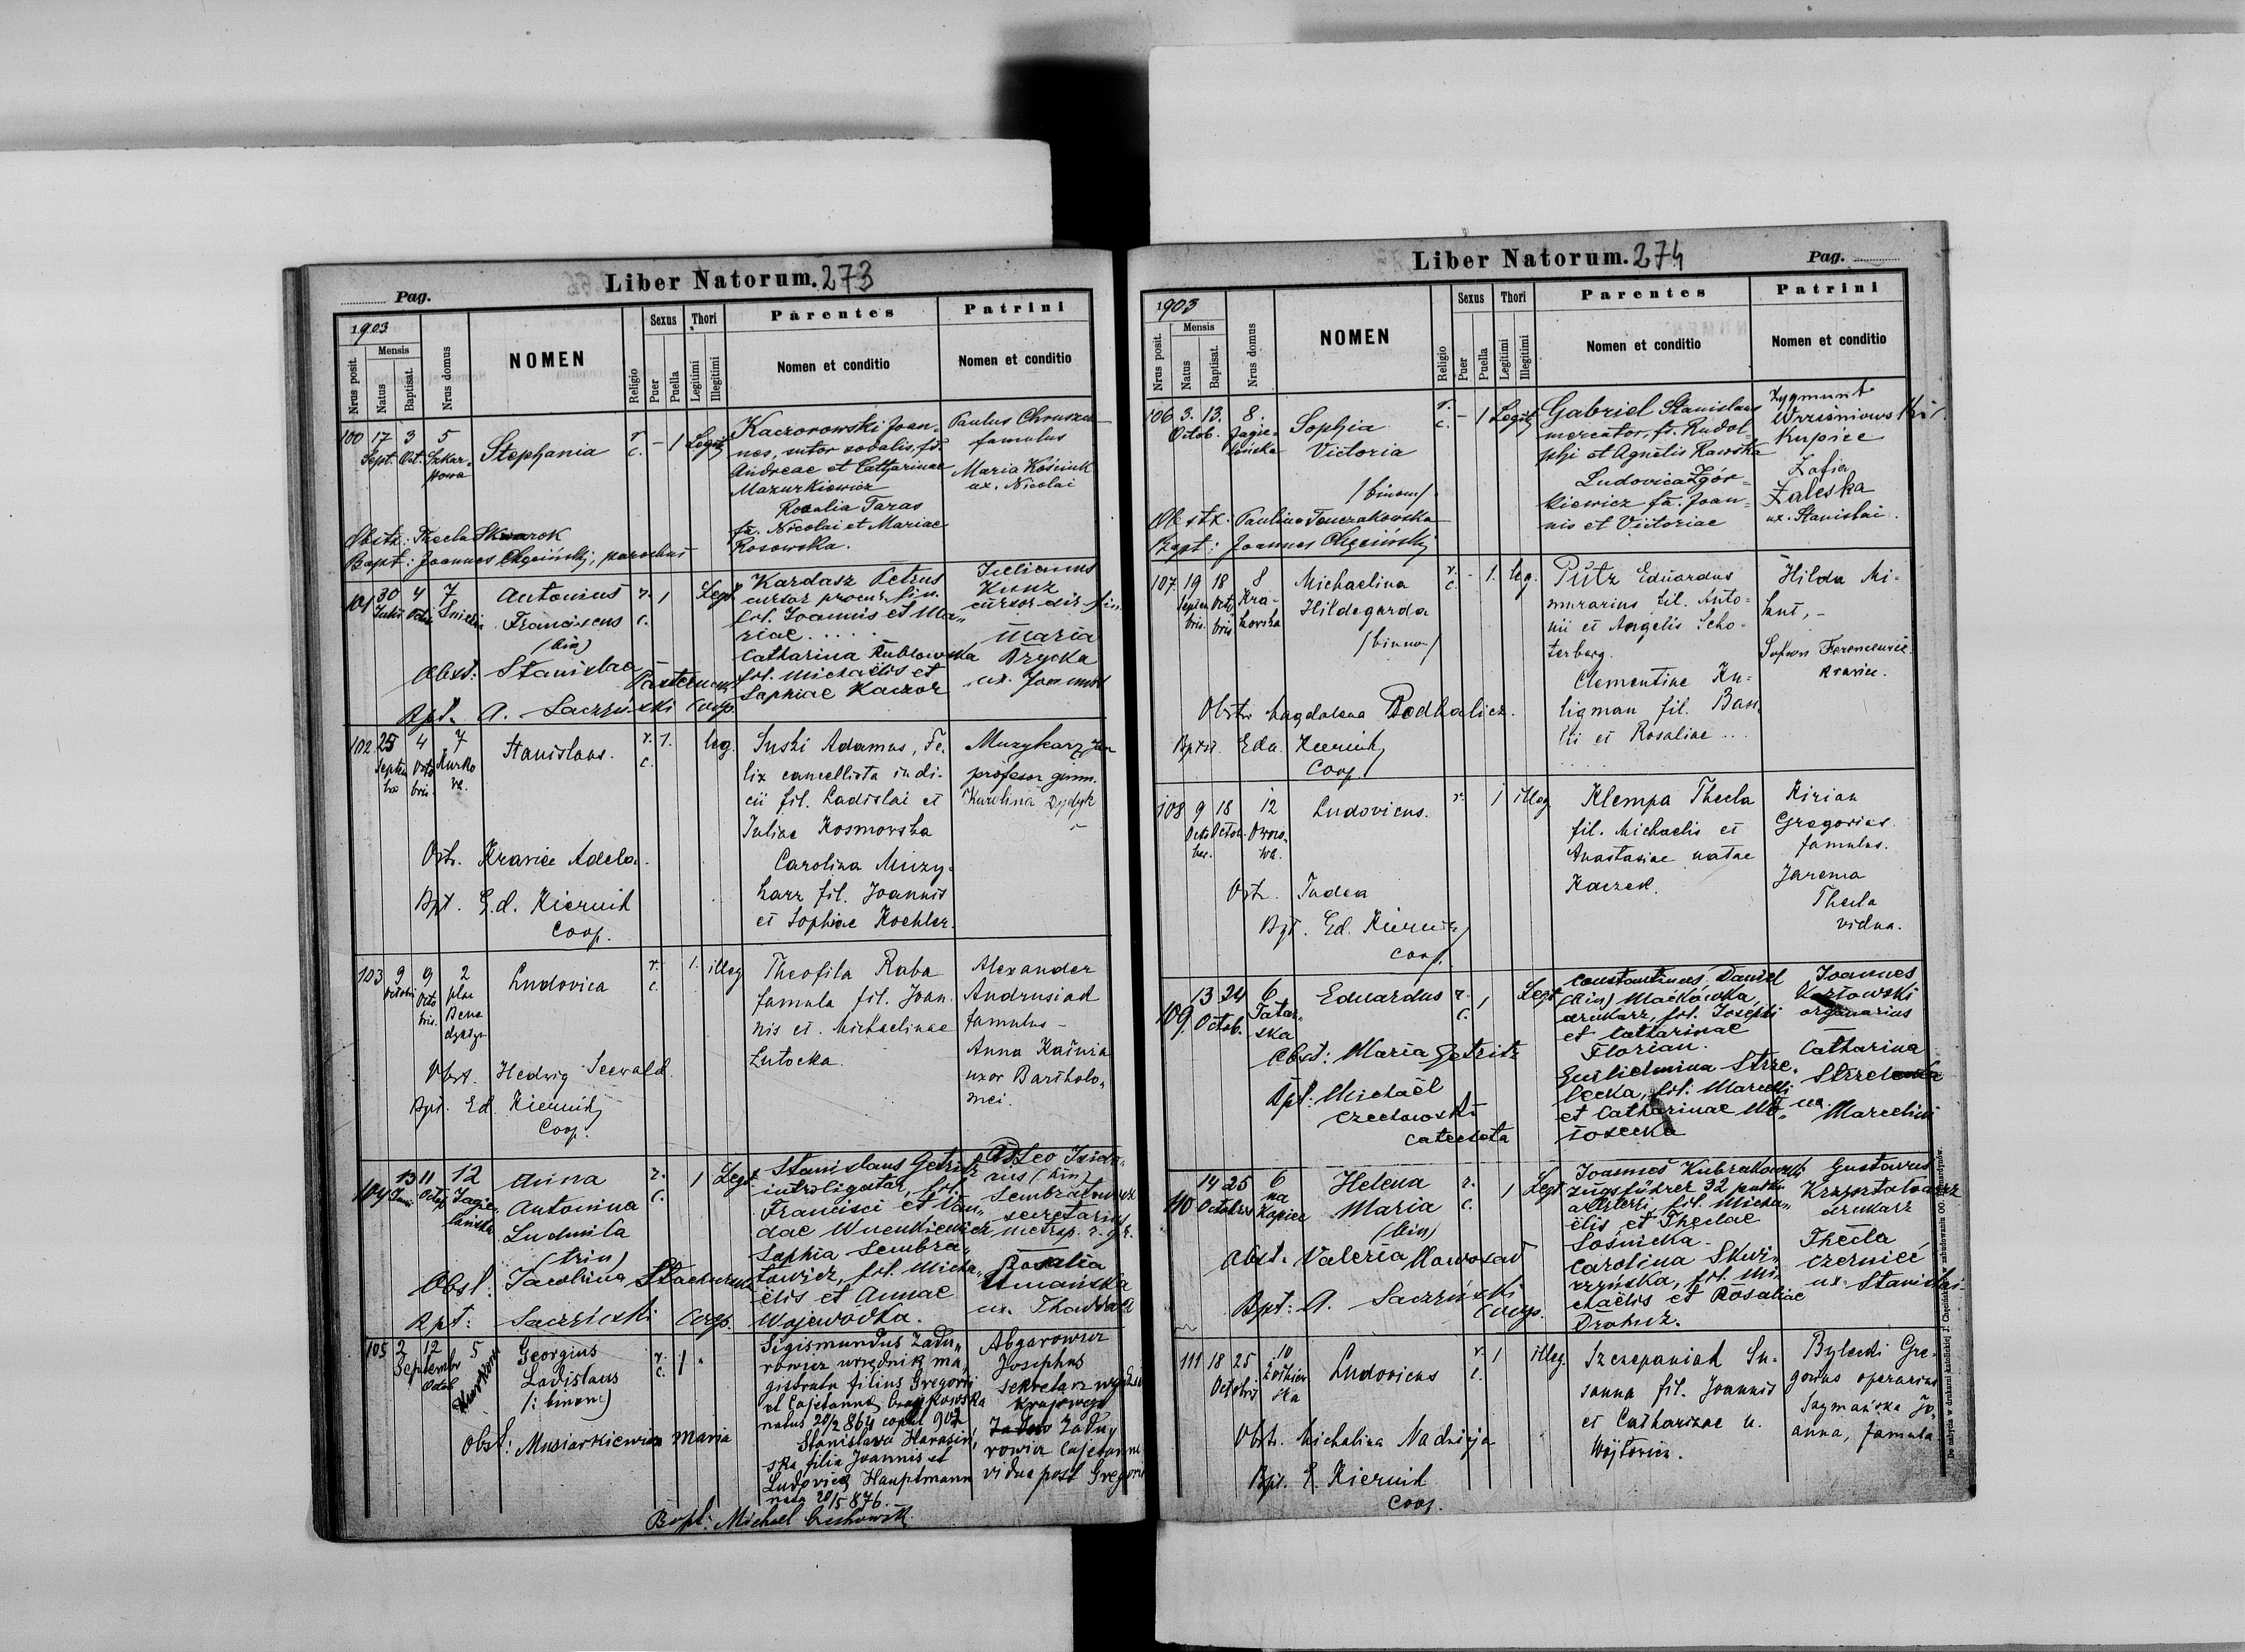 Pag.
Liber Natorum. 273
1903
Nrus posit.
Mensis
Natus
Baptisat.
Nrus domus
NOMEN
Religio
Sexus
Puer
Puella
Thori
Legitimi
Illegitimi
Parentes
Nomen et conditio
Patrini
Nomen et conditio
100 17 Sept. 3 Oct. 5 Szkarpowa
Stephania
r. c. - 1 Legit.
Kaczorowski Joan-
nes, sutor sodalis, fs.
Andreae et Catharinae
Mazurkiewicz
Rosalia Taras
fa. Nicolai et Mariae
Rosowska.
Paulus
famulus
Maria Kościuk
ux. Nicolai
Obstx: Thecla Skwarok
Bapt: Joannes Chęciński, parochus
101 30 Julii 4 Octob. 7
Antonius
Franciscus
(bin)
r. c. 1 Legt.
Kardasz Petrus
cursor procur. fin.
fil. Joannis et Ma„
riae.....
Catharina Rublowska
fil. Michaëlis et
Sophiae Kaczor
Julianus
Kunz
cursor dir. fin.
Maria
Brycka
ux. Joannis
Obst: Stanislaa
Bpt. A. Saczyński Coop.
102 25 Septem bris 4 Octo bris. 7 Kurko wa.
Stanislaus.
r. c. 1. leg.
Suski Adamus, Fe-
lix cancellista indi-
cii fil. Ladislai et
Juliae Kosmowska
Carolina Muzy-
karz fil. Joannis
et Sophiae Koehler.
Muzykarz Jan
profesor gimn.
Karolina Dydyk
Obst. Kravice Adela.
Bpt. Ed. Kiernik
Coop.
103 9 Octobris 9 Octo bris. 2 plac Bene dyktyn
Ludovica
r. c. 1. illeg
Theofila Raba
famula fil. Joan-
nis et Michaelinae
Lutocka.
Alexander
Andrusiak
famulus -
Anna Kaźnia
uxor Bartholo„
mei.
Obst. Hedwig Seewald.
Bpt. Ed. Kiernik
Coop.
104 13 Junii 11 Octob 12 Jagie„ lońska
Anna
Antonina
Ludmila
(trin)
r. c. 1 Legt.
Stanislaus Getritz
introligator, fil.
Francisci et Van„
dae Wnenkiewicz
Sophia Sembra„
towicz, fil. Micha„
ëlis et Annae
Wojewódka.
Leo Isido„
rus (bin)
Sembratowicz
secretarius
metrop. r. gr.
Rosalia
Umańska
ux. Thaddaei
Obst: Jacobina
Bpt: Saczyński Coop.
105 2 Septembr 12 Octob 5 Kurkowa
Georgius
Ladislaus
(: binom:)
r. c. 1
Sigismundus Zadu„
rowicz urzędnik ma„
gistratu filius Gregorii
et Cajetanae
natus 20/2 864 copul 902
Stanislava Harasiń„
ska filia Joannis et
Ludovicae Hauptmann
nata 20/5 876.
Abgarowicz
Josephus
sekretarz wydziału
krajowego
Zadu„
rowicz Cajetanna
vidua post Gregorio
Obst: Musiankiewicz Maria
Bapt: Michael Czechowski
Liber Natorum. 274
Pag.
1903
Nrus posit.
Mensis
Natus
Baptisat.
Nrus domus
NOMEN
Religio
Sexus
Puer
Puella
Thori
Legitimi
Illegitimi
Parentes
Nomen et conditio
Patrini
Nomen et conditio
106 3. 13. Octob. 8. Jagie- lońska
Sophia
Victoria
/binom/
r. c. - 1 Legit.
Gabriel Stanislaus
mercator, fs. Rudol-
phi et Agnetis Rawska
Ludovica Zgór-
kiewicz fa. Joan-
nis et Victoriae
Zygmunt
Wrześniowski
Kupiec
Zofia
Zaleska
ux. Stanislai.
Obstx: Paulina Tonczakowska
Bapt: Joannes Chęciński
107. 19 Septem bris. 18 Octo bris 8 Kra- kowska
Michaelina
Hildegarda
/binom/
r. c. - 1. leg.
Pütz Eduardus
murarius fil. Anto-
nii et Angelis Scho-
terberg.
Clementine Ku-
ligman fil. Basi-
lii et Rosaliae...
Hilda Mi-
Ferencewicz
Krawiec.
Obstr. Magdalena Podhalicz.
Bptst. Edu. Kiernik
Coop.
108 9 Octo bris. 18 Octob. 12
Ludovicus.
r. 1 illeg
Klempa Thecla
fil. Michaelis et
Anastasiae natae
Kaczek.
Kirian
Gregorius
famulus.
Jarema
Thecla
vidua.
Obst. Judea
Bpt. Ed. Kiernik
Coop.
109. 13 24 Octob. 6 Tatar„ ska
Eduardus
r. c. 1 Legt
Constantinus, Daniel
(bin) Maćkówka,
drukarz, fil. Josephi
et Catharinae
Florian.
Guilielmina Strze„
lecka, fil. Marcelli
et Catharinae
Joannes
Kozłowski
organarius
Catharina
Strzelecka
ux. Marcelini
Obst: Maria Getritz
Bpt: Michaël
Czechowski
Catecheta
110 14 25 Octobris 6 na Kopiec
Helena
Maria
(bin)
r. c. 1 Legt
Joannes Kubrakowski
zugsführer 32 pułku
artlerii, fil. Micha„
ëlis et Theclae
Sośnicka.
Carolina Skwi„
rzyńska, fil. Mi„
chaëlis et Rosaliae
Drohuz.
Gustavus
Krzyształowicz
drukarz
Thecla
Czerniec
ux. Stanislai
Obst. Valeria Nowosad
Bpt: A. Saczyński
Coop.
111 18 25 Octobris 10 Żółkiew ska
Ludovicus
r. c. 1 illeg.
Szczepaniak Su-
sanna fil. Joannis
et Catharinae n.
Wójtowicz.
Bylecki Gre-
gorius operarius
Szymańska Jo„
anna, famula
Obstr. Michalina Nadzieja
Bpt. E. Kiernik
Coop.
Do nabycia w drukarni katolickiej J. Chęcińskiego w zabudowaniu OO. Bernardynów.